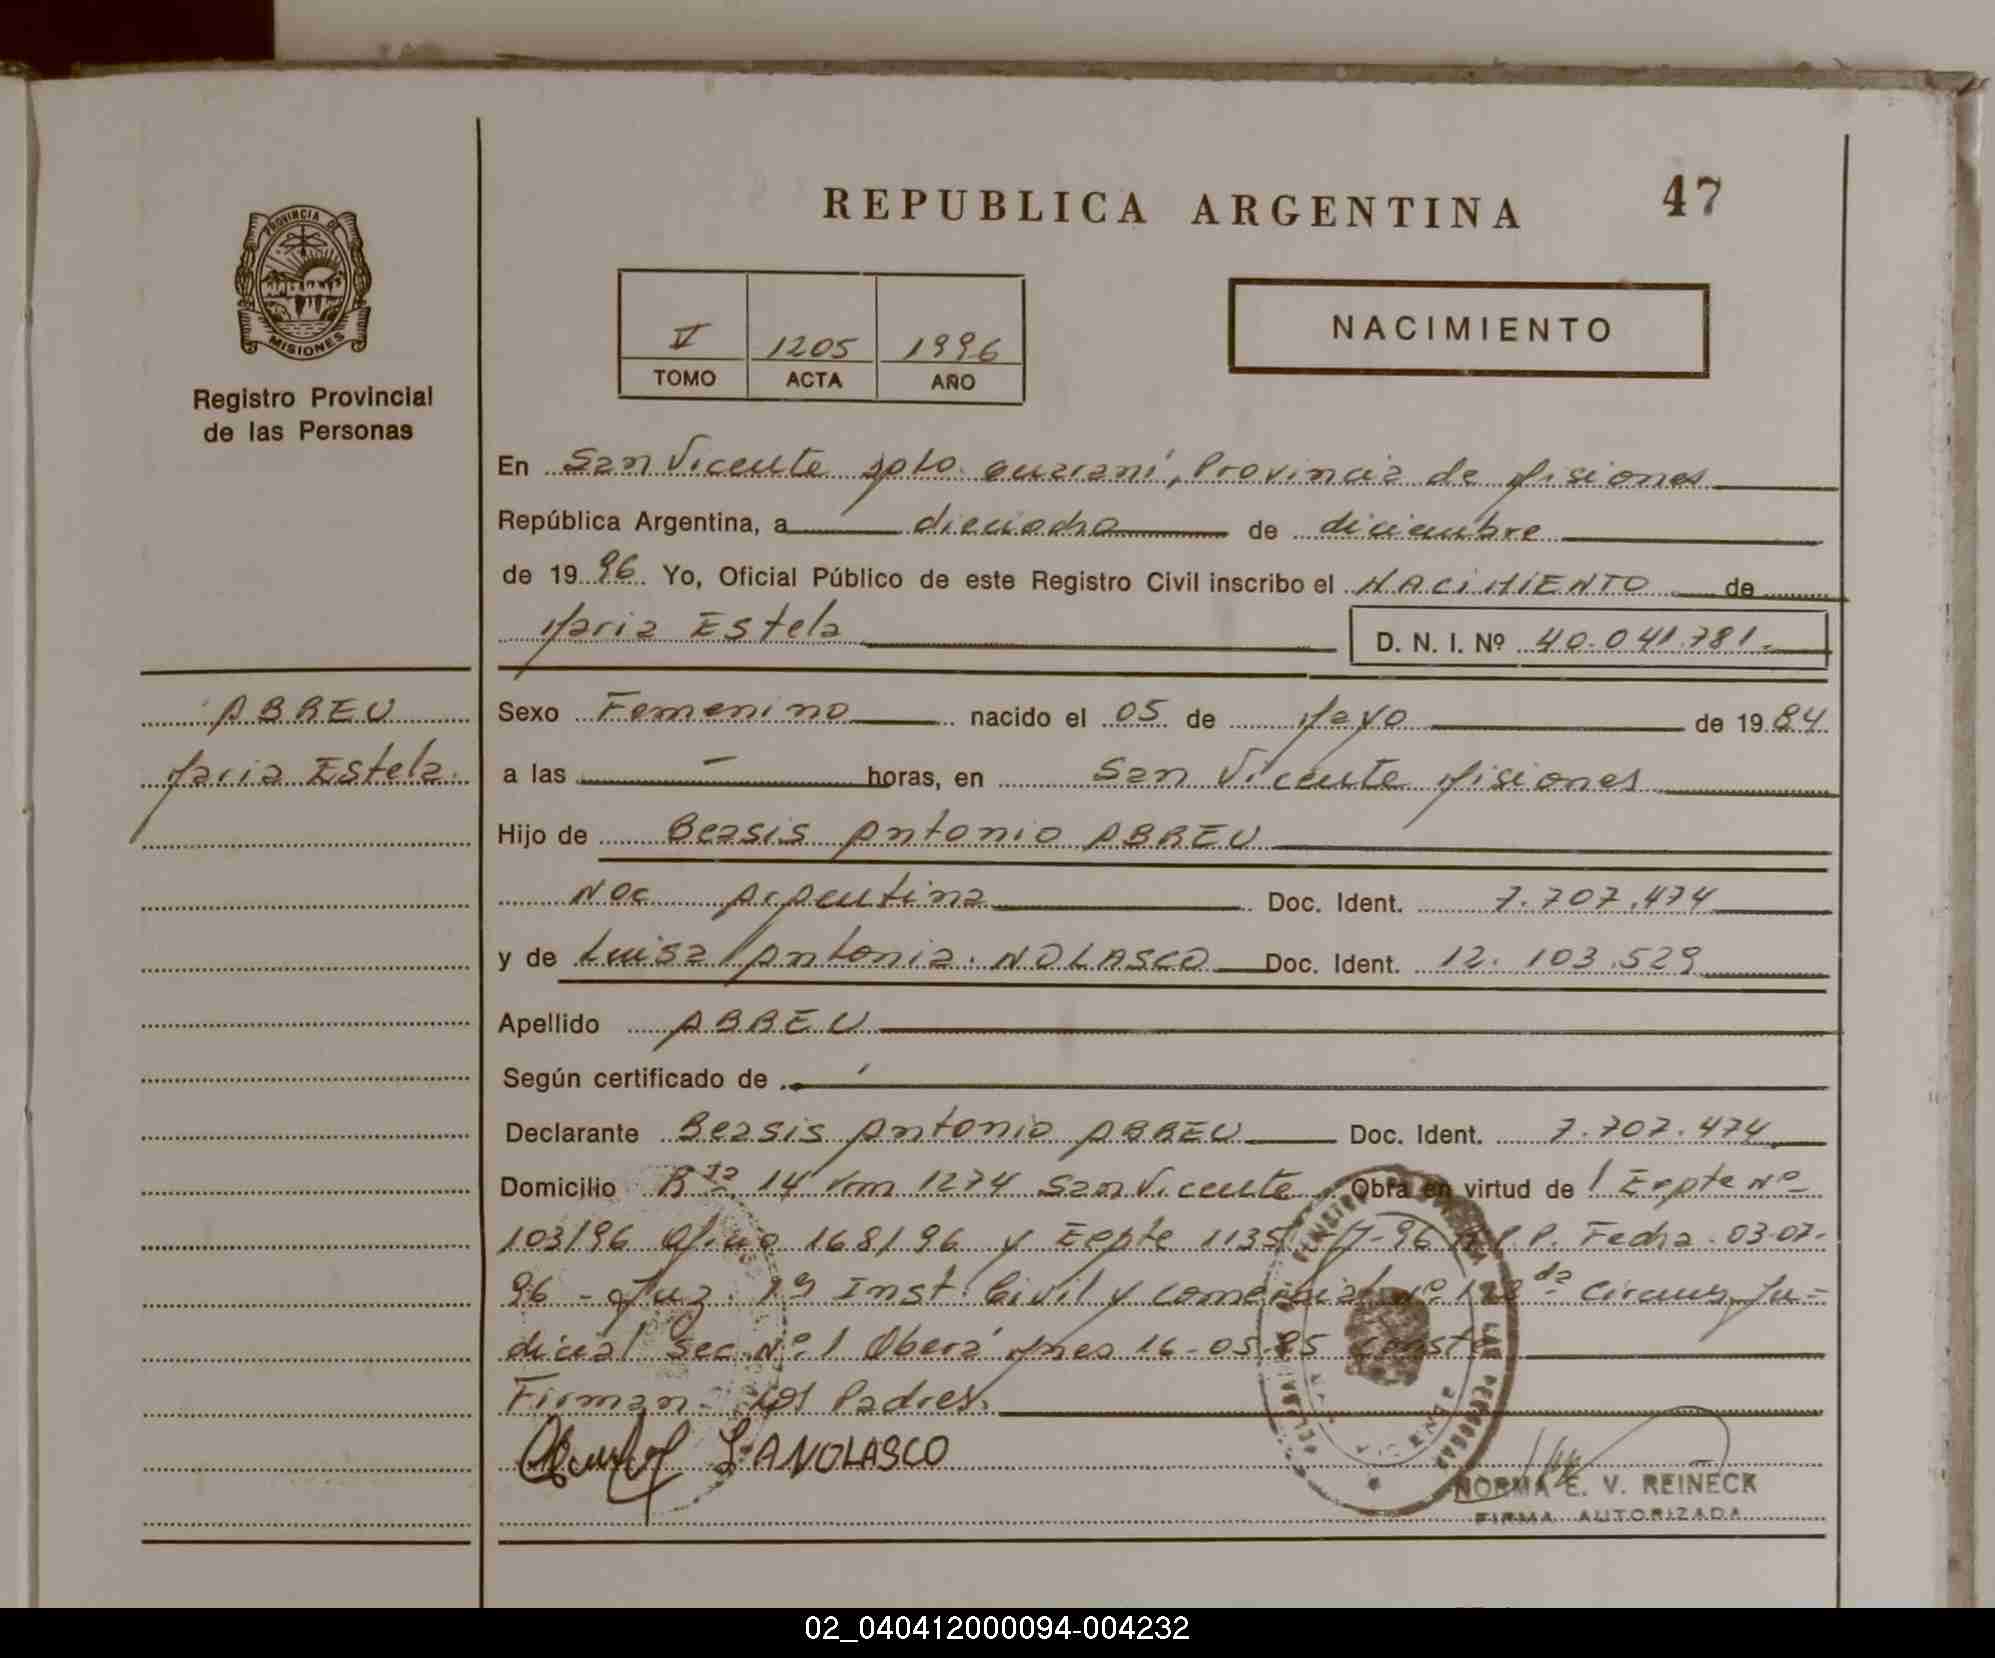 REPUBLICA ARGENTINA
47
PROVINCIA DE
MISIONES
Registro Provincial
de las Personas
V 1205 1996
TOMO ACTA AÑO
NACIMIENTO
En San Vicente Dpto. Guaraní, Provincia de Misiones
República Argentina, a dieciocho de diciembre
de 19 96 Yo, Oficial Público de este Registro Civil inscribo el NACIMIENTO de
Maria Estela D. N. I. Nº 40.041.781.-
ABREU
Maria Estela.
Sexo Femenino nacido el 05 de Mayo de 19 84
a las — horas, en San Vicente Misiones
Hijo de Beasis Antonio ABREU
Nac Argentina Doc. Ident. 7.707.474
y de Luisa Antonia NOLASCO Doc. Ident. 12.103.529
Apellido ABREU
Según certificado de
Declarante Beasis Antonio ABREU Doc. Ident. 7.707.474
Domicilio Rta 14 Km 1274 San Vicente Obra en virtud de Expte Nº
103/96 Oficio 168/96 y Expte 1135 R.P.P. Fecha 03-07-
96 - Juz. 1º Inst. Civil y Comercial Nº 1 2da Circuns. Ju-
dicial Sec. Nº 1 Oberá Mnes 16-05-85 conste
Firman los Padres.
L. A NOLASCO
NORMA E. V. REINECK
FIRMA AUTORIZADA
02_040412000094-004232